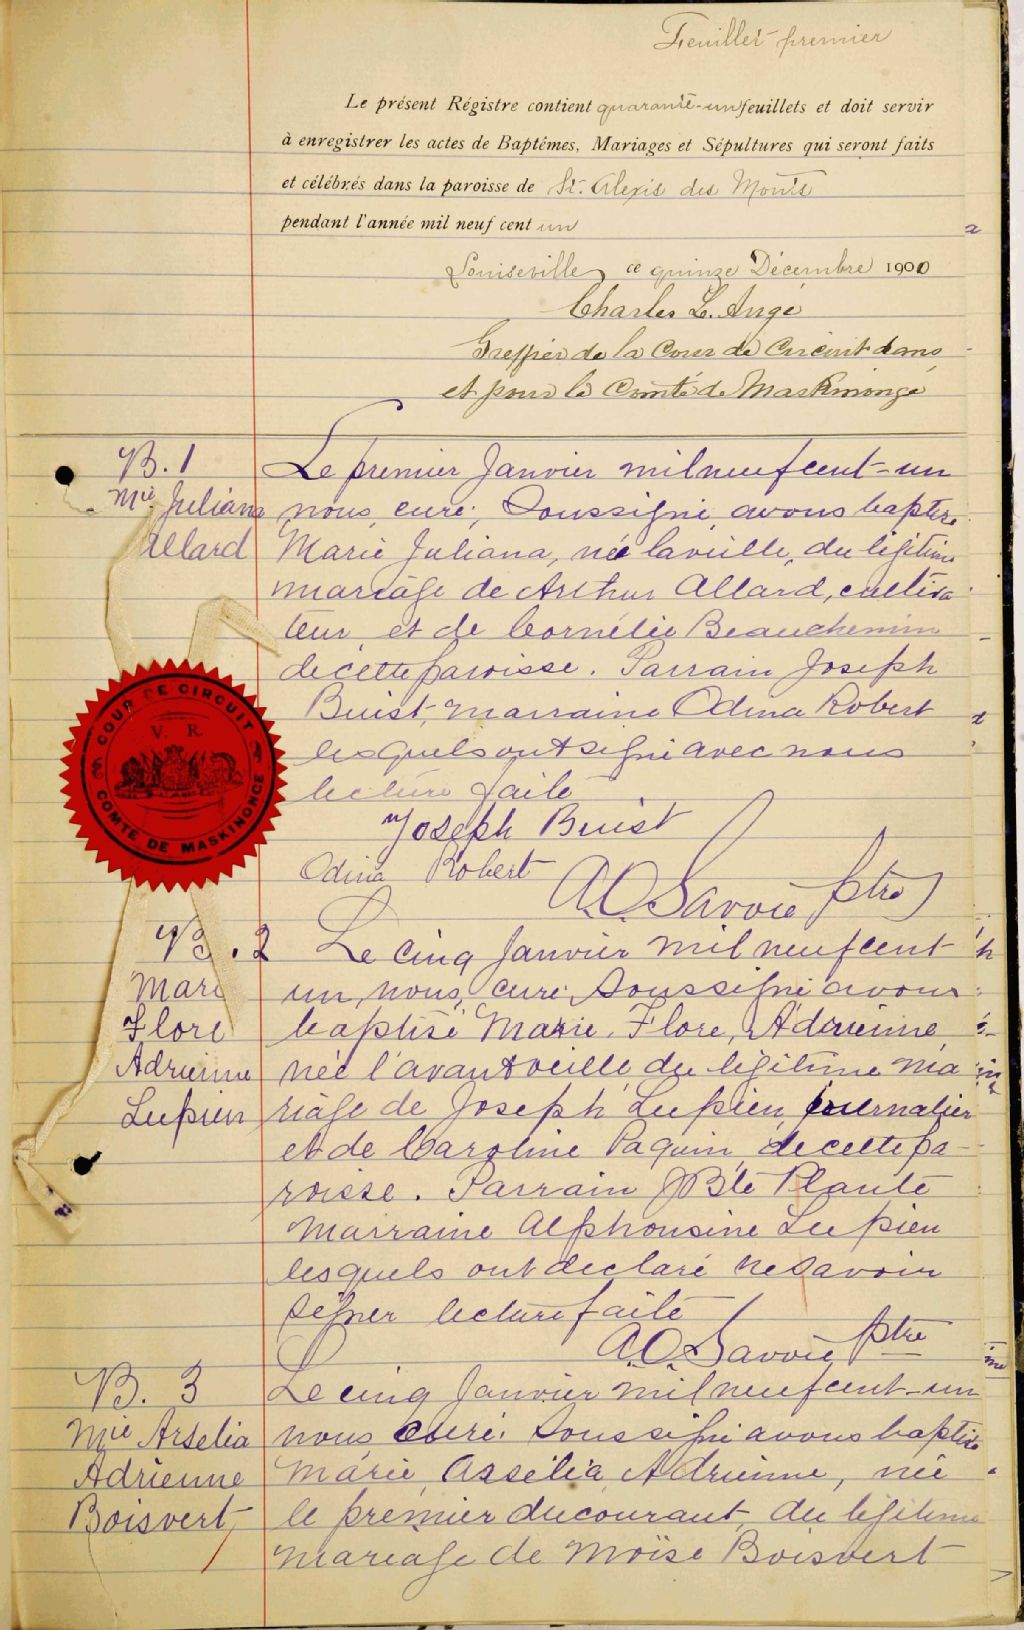 Feuillet premier
Le présent Régistre contient quarante-un feuillets et doit servir
à enregistrer les actes de Baptêmes, Mariages et Sépultures qui seront faits
et célébrés dans la paroisse de St. Alexis des Monts
pendant l'année mil neuf cent un
Louiseville, ce quinze Décembre 1900
Charles L. Augé
Greffier de la Cour de Circuit dans
et pour le Comté de Maskinongé
B. 1
Mie Juliana
Allard
Le premier Janvier mil neuf cent-un
nous, curé, Soussigné, avons baptisé
Marie Juliana, née la veille, du légitime
mariage de Arthur Allard, cultiva
teur et de Cornélie Beauchemin
de cette paroisse. Parrain Joseph
Buist, marraine Odina Robert
lesquels ont signé avec nous
lecture faite
Joseph Buist
Odina Robert
A.O. Savoie ptre
COUR DE CIRCUIT
V. R.
COMTÉ DE MASKINONGE
B. 2
Marie
Flore
Adrienne
Lupien
Le cinq Janvier mil neuf cent
un, nous, curé Soussigné avons
baptisé Marie, Flore, Adrienne,
née l'avant veille, du légitime ma
riage de Joseph Lupien, journalier
et de Caroline Paquin, de cette pa-
roisse. Parrain JBte Plante
Marraine Alphonsine Lupien
lesquels ont declaré ne savoir
signer lecture faite
A.O. Savoie ptre
B. 3
Mie Arselia
Adrienne
Boisvert
Le cinq Janvier mil neuf cent-un
nous, curé Soussigné avons baptisé
Marie, Assélia, Adrienne, née
le premier du courant, du légitime
mariage de Moïse Boisvert